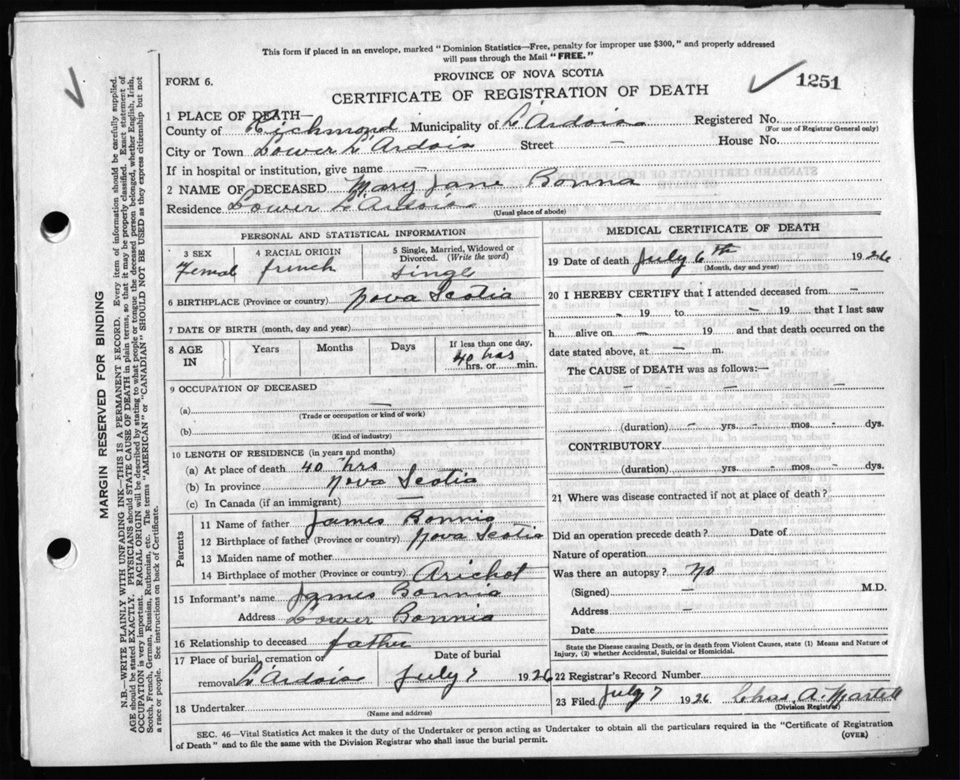 This form if placed in an envelope, marked "Dominion Statistics—Free, penalty for improper use $300," and properly addressed
will pass through the Mail "FREE."
FORM 6.
PROVINCE OF NOVA SCOTIA
CERTIFICATE OF REGISTRATION OF DEATH
1251
1 PLACE OF DEATH—
County of Richmond Municipality of L'Ardoise Registered No.
(For use of Registrar General only)
City or Town Lower L'Ardois Street — House No.
If in hospital or institution, give name
2 NAME OF DECEASED Mary Jane Bonna
Residence Lower L'Ardois
(Usual place of abode)
PERSONAL AND STATISTICAL INFORMATION
3 SEX
Femal
4 RACIAL ORIGIN
french
5 Single, Married, Widowed or
Divorced. (Write the word)
Singl
6 BIRTHPLACE (Province or country) Nova Scotia
7 DATE OF BIRTH (month, day and year)
8 AGE
IN
Years Months Days
If less than one day,
40 hrs
hrs. or min.
9 OCCUPATION OF DECEASED
(a) —
(Trade or occupation or kind of work)
(b)
(Kind of industry)
10 LENGTH OF RESIDENCE (in years and months)
(a) At place of death 40 hrs
(b) In province Nova Scotia
(c) In Canada (if an immigrant) —
Parents
11 Name of father James Bonnia
12 Birthplace of father (Province or country) Nova Scotia
13 Maiden name of mother
14 Birthplace of mother (Province or country) Arichat
15 Informant's name James Bonnia
Address Lower Bonnia
16 Relationship to deceased father
17 Place of burial, cremation or
removal L'Ardois
Date of burial
July 7 1926
18 Undertaker
(Name and address)
MEDICAL CERTIFICATE OF DEATH
19 Date of death July 6th 1926
(Month, day and year)
20 I HEREBY CERTIFY that I attended deceased from —
– 19 to – 19 that I last saw
h alive on – 19 and that death occurred on the
date stated above, at – m.
The CAUSE of DEATH was as follows:—
– – – –
(duration) – yrs. – mos. – dys.
CONTRIBUTORY
(duration) yrs. – mos. – dys.
21 Where was disease contracted if not at place of death?
Did an operation precede death? Date of
Nature of operation
Was there an autopsy? No
(Signed) – M.D.
Address –
Date
State the Disease causing Death, or in death from Violent Causes, state (1) Means and Nature of
Injury, (2) whether Accidental, Suicidal or Homicidal.
22 Registrar's Record Number
23 Filed July 7 1926 Chas. A. Martell
(Division Registrar)
SEC. 46—Vital Statistics Act makes it the duty of the Undertaker or person acting as Undertaker to obtain all the particulars required in the "Certificate of Registration
of Death" and to file the same with the Division Registrar who shall issue the burial permit.
(OVER)
MARGIN RESERVED FOR BINDING
N.B.—WRITE PLAINLY WITH UNFADING INK—THIS IS A PERMANENT RECORD. Every item of information should be carefully supplied.
AGE should be stated EXACTLY. PHYSICIANS should STATE CAUSE OF DEATH in plain terms, so that it may be properly classified. Exact statement of
OCCUPATION is very important. RACIAL ORIGIN will be described by stating to what people or tongue the deceased person belonged, whether English, Irish,
Scotch, French, German, Russian, Ruthenian, etc. The terms "AMERICAN" or "CANADIAN" SHOULD NOT BE USED as they express citizenship but not
a race or people. See instructions on back of Certificate.